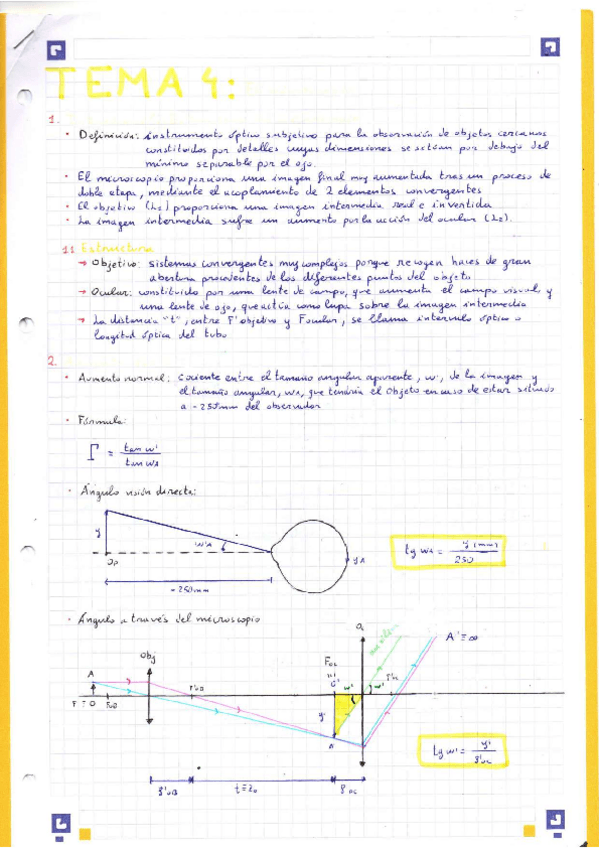 TEMA 4:
1.
· Definición: instrumento óptico subjetivo para la observación de objetos cercanos
constituidos por detalles cuyas dimensiones se sitúan por debajo del
mínimo separable por el ojo.
· El microscopio proporciona una imagen final muy aumentada tras un proceso de
doble etapa, mediante el acoplamiento de 2 elementos convergentes
· El objetivo (L1) proporciona una imagen intermedia real e invertida
· La imagen intermedia sufre un aumento por la acción del ocular (L2).
1.1 Estructura
→ Objetivo: sistemas convergentes muy complejos porque recogen haces de gran
abertura procedentes de los diferentes puntos del objeto
→ Ocular: constituido por una lente de campo, que aumenta el campo visual y
una lente de ojo, que actúa como lupa sobre la imagen intermedia
→ La distancia "t", entre F'objetivo y Focular, se llama intervalo óptico o
longitud óptica del tubo
2.
· Aumento normal: cociente entre el tamaño angular aparente, w', de la imagen y
el tamaño angular, wA, que tendría el objeto en caso de estar situado
a -250mm del observador
· Fórmula:
Γ = tan w' / tan wA
· Ángulo visión directa:
y
wA
OP
yA
-250mm
tg wA = y (mm) / 250
· Ángulo a través del microscopio
Obj
A
F'OB
FOC
w'
w'
F'OC
A' ≡ ∞
y'
tg w' = y' / f'oc
f'OB
t = zo
fOC